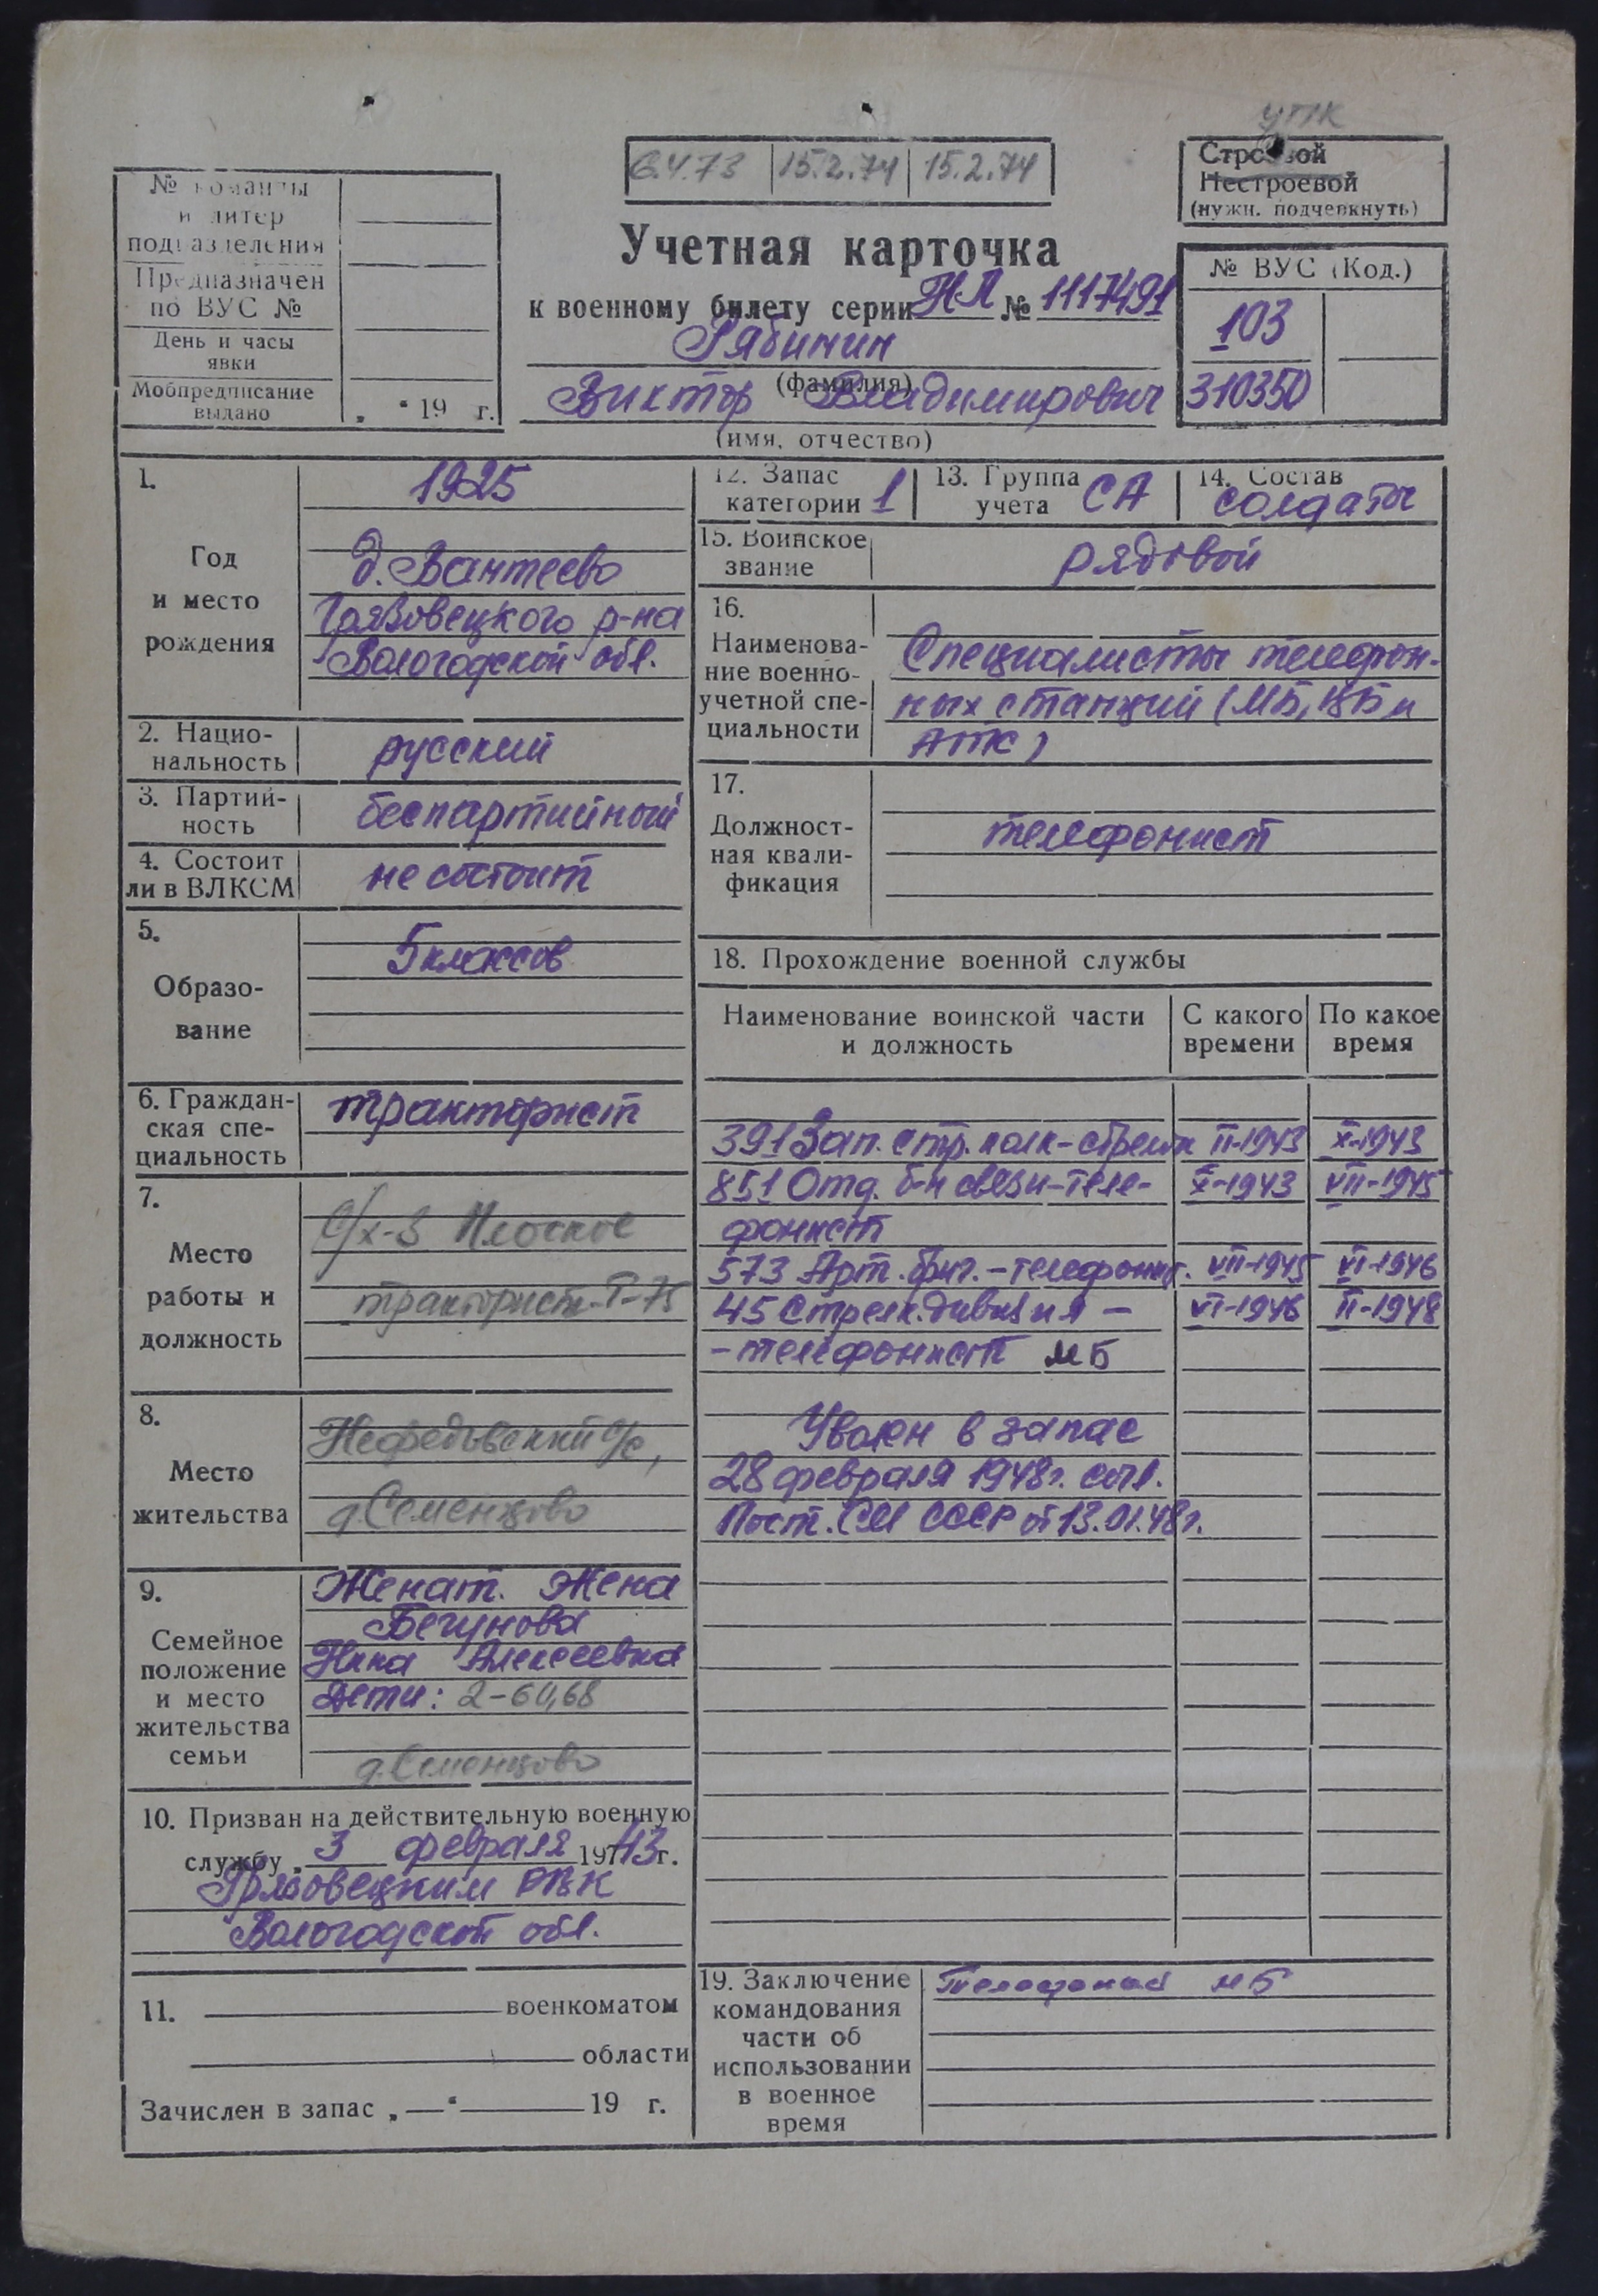 УПК
6.4.73 15.2.74 15.2.74
Строевой
Нестроевой
(нужн. подчеркнуть)
№ команды
и литер
подразделения
Предназначен
по ВУС №
День и часы
явки
Мобпредписание
выдано „ “ 19 г.
Учетная карточка
к военному билету серии НЛ № 1117491
Рябинин
(фамилия)
Виктор Владимирович
(имя, отчество)
№ ВУС (Код.)
103
310350
1.
Год
и место
рождения
1925
д. Вантеево
Грязовецкого р-на
Вологодской обл.
2. Нацио-
нальность
русский
3. Партий-
ность
беспартийный
4. Состоит
ли в ВЛКСМ
не состоит
5.
Образо-
вание
5 классов
6. Граждан-
ская спе-
циальность
тракторист
7.
Место
работы и
должность
с/х-з Плоское
тракторист Т-75
8.
Место
жительства
Нефедовский с/с,
д. Семенцово
9.
Семейное
положение
и место
жительства
семьи
Женат. Жена
Бегунова
Нина Алексеевна
Дети: 2-60,68
д. Семенцово
10. Призван на действительную военную
службу „ 3 февраля 1943 г.
Грязовецким РВК
Вологодской обл.
11. военкоматом
области
Зачислен в запас „—“ 19 г.
12. Запас
категории 1
13. Группа
учета СА
14. Состав
солдаты
15. Воинское
звание
рядовой
16.
Наименова-
ние военно-
учетной спе-
циальности
Специалисты телефон-
ных станций (МБ, ЦБ и
АТС)
17.
Должност-
ная квали-
фикация
телефонист
18. Прохождение военной службы
Наименование воинской части
и должность
С какого
времени
По какое
время
391 Зап. стр. полк - стрелок II-1943 X-1943
851 Отд. б-н связи - теле- X-1943 VII-1945
фонист
573 Арт. бриг. - телефонист. VII-1945 VI-1946
45 Стрелк. дивизия - VI-1946 II-1948
- телефонист МБ
Уволен в запас
28 февраля 1948 г. согл.
Пост. СМ СССР от 13.01.48 г.
19. Заключение
командования
части об
использовании
в военное
время
МБ